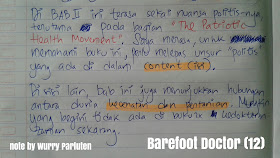 Di BAB II ini terasa sekali nuansa politis-nya
terutama pada bagian "The Patriotic
Health Movement". Saya merasa, untuk
memahami buku ini, perlu melepas unsur "politis"
yang ada di dalam content (isi).
Di sisi lain, bab ini juga menunjukkan hubungan
antara dunia kesehatan dan pertanian. Mungkin
yang begini tidak ada di buku2 kedokteran
zaman sekarang.
note by wurry parluten
Barefoot Doctor (12)